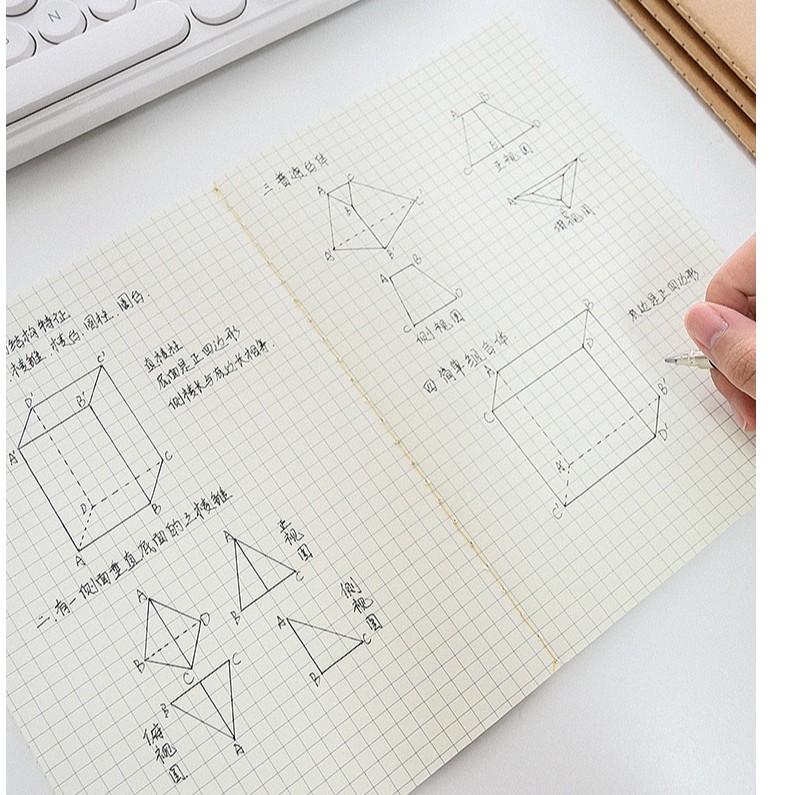 N
结构特征
棱锥、棱台、圆柱、圆台.
直棱柱
底面是正四边形
侧棱长与底边长相等.
D'
C'
A'
B'
C
D
B
A
二.有一侧面垂直底面的三棱锥
A
D
B
C
A
B
C
正视图
A
B
C
侧视图
B
C
A
俯视图
三.普通台体
A
C
B
C'
A'
B'
A
B
C
E
D
正视图
A
C
B
俯视图
A
B
C
D
侧视图
四.简单组合体
底边是正四边形
A
B
C
D
A'
B'
C'
D'